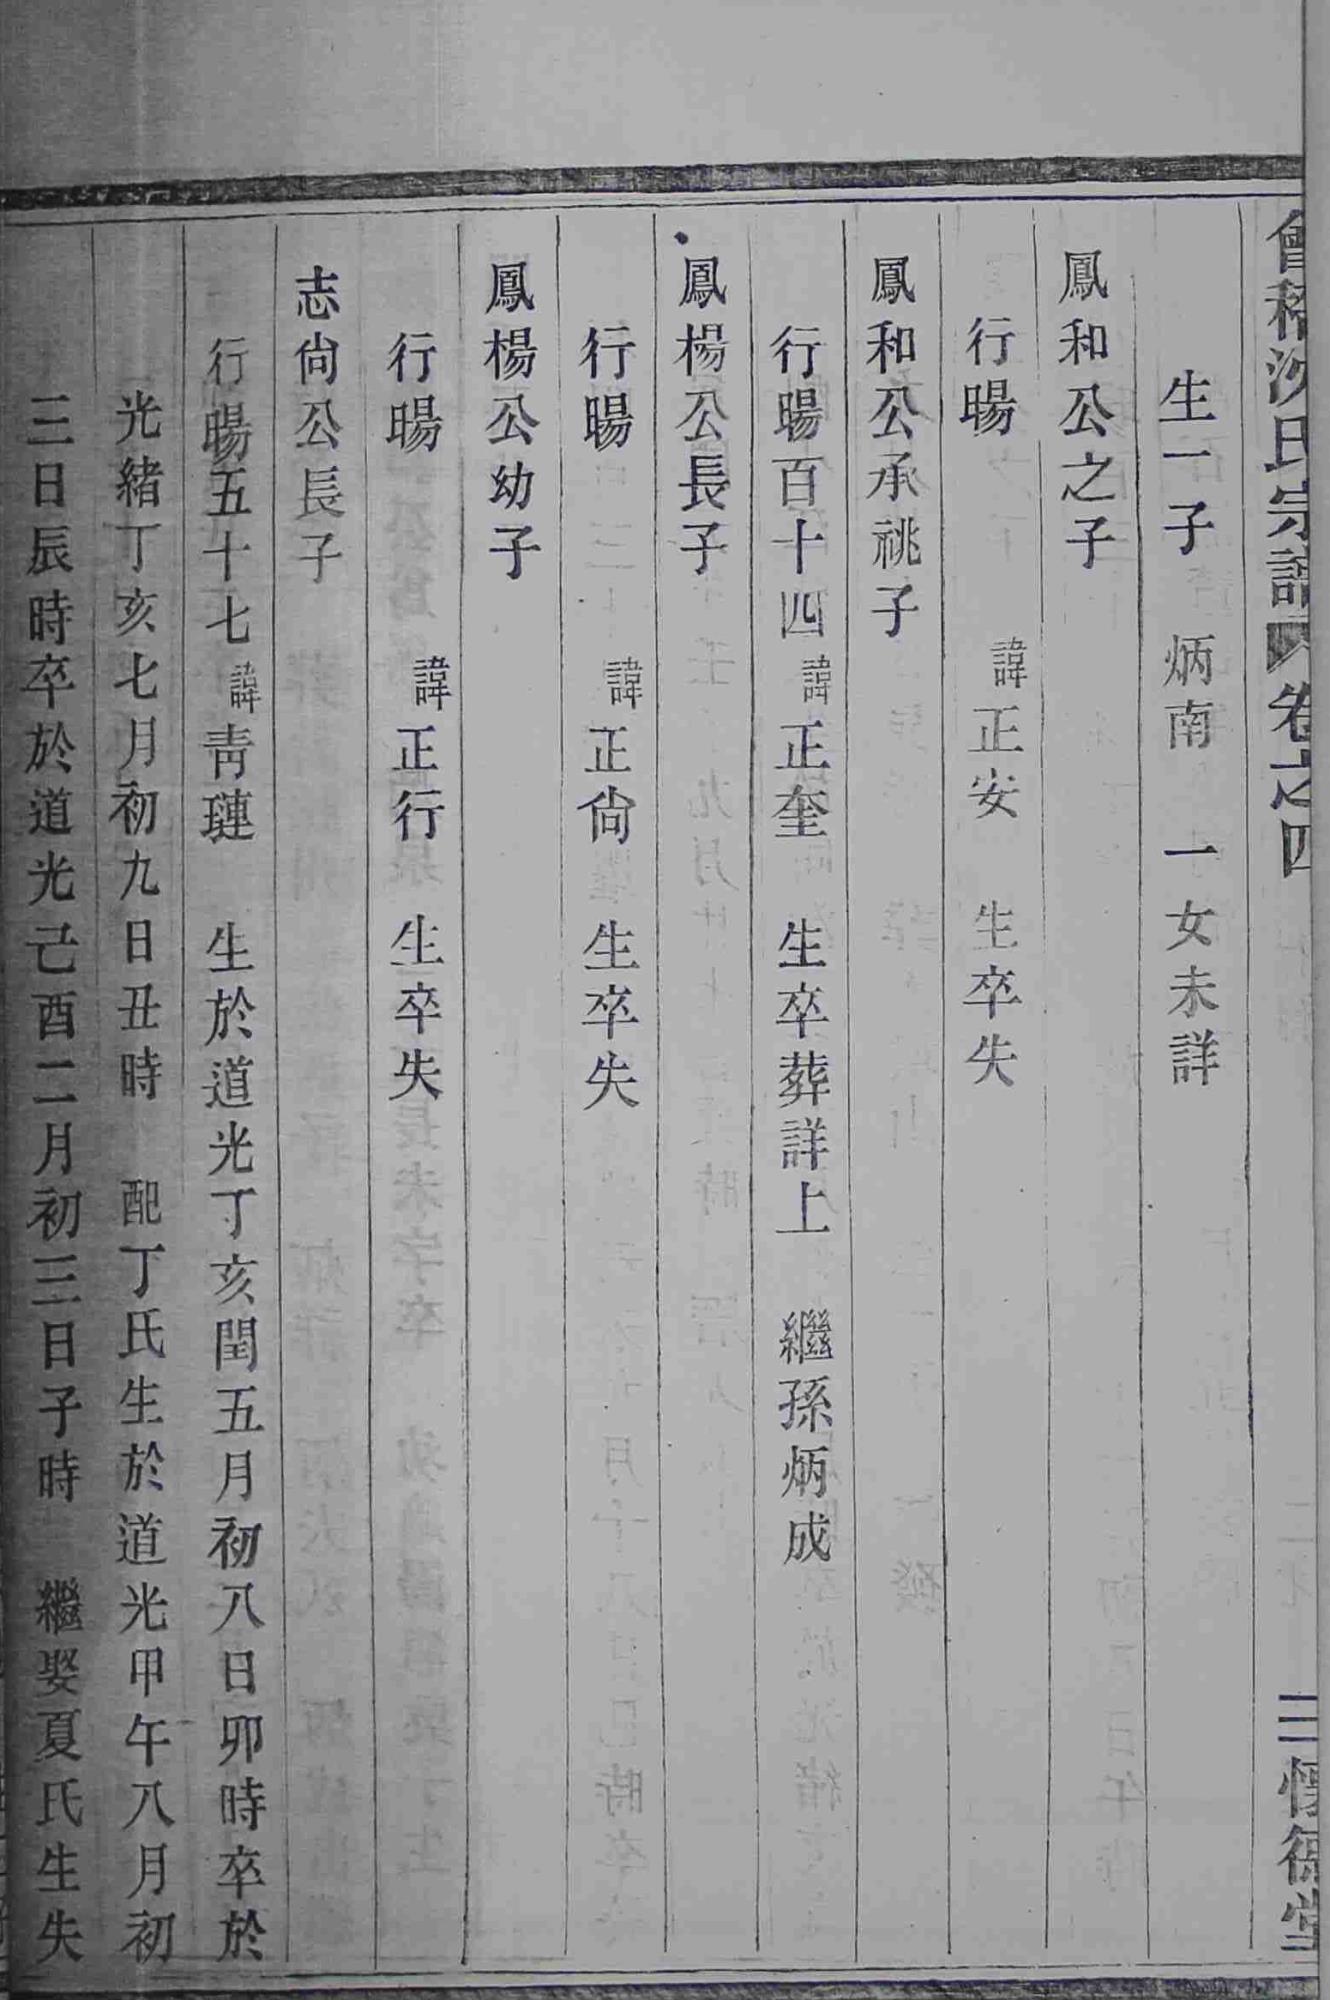 會稽沈氏宗譜 卷之四
三懷德堂
生一子 炳南 一女未詳
鳳和公之子
行暘 諱正安 生卒失
鳳和公承祧子
行暘百十四諱正奎 生卒葬詳上 繼孫炳成
鳳楊公長子
行暘 諱正尙 生卒失
鳳楊公幼子
行暘 諱正行 生卒失
志尙公長子
行暘五十七諱靑璉 生於道光丁亥閏五月初八日卯時卒於
光緖丁亥七月初九日丑時 配丁氏生於道光甲午八月初
三日辰時卒於道光己酉二月初三日子時 繼娶夏氏生失